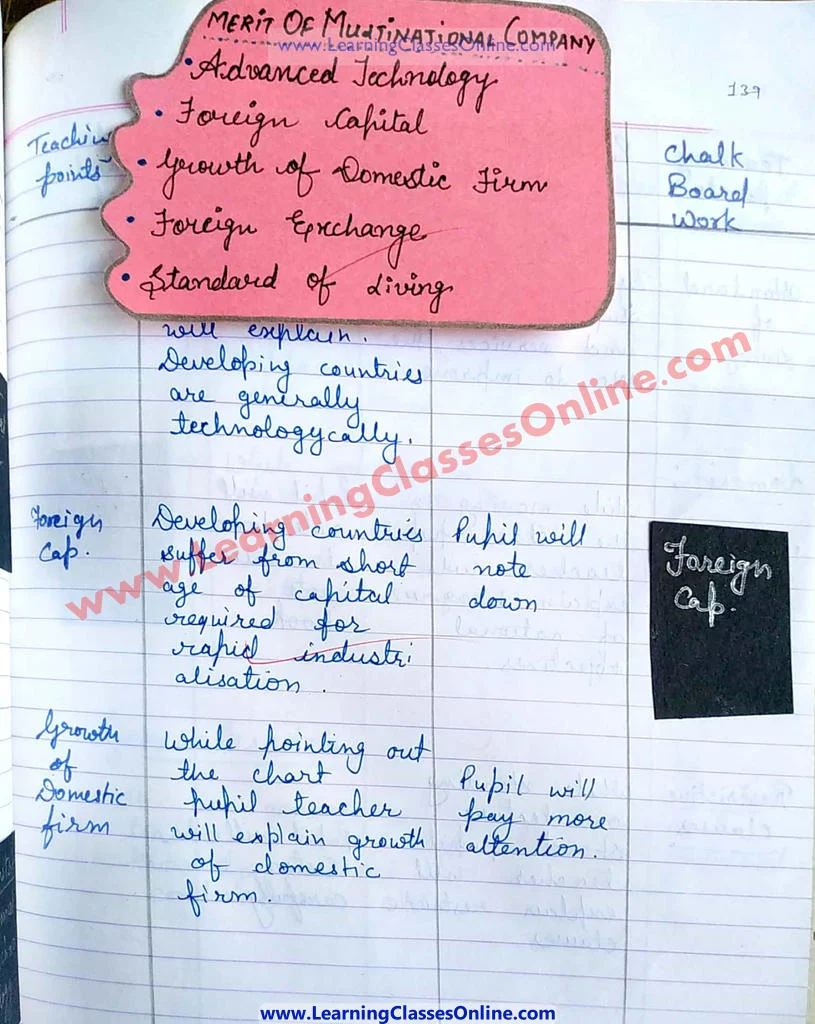 MERIT OF MULTINATIONAL COMPANY
www.LearningClassesOnline.com
• Advanced Technology
• Foreign Capital
• Growth of Domestic Firm
• Foreign Exchange
• Standard of Living
139
Teaching
points
Chalk
Board
Work
will explain.
Developing countries
are generally
technologycally.
www.LearningClassesOnline.com
Foreign
Cap.
Developing countries
suffer from short
age of capital
required for
rapid industri
alisation.
Pupil will
note
down
Foreign
Cap.
Growth
of
Domestic
firm
While pointing out
the chart
pupil teacher
will explain growth
of domestic
firm.
Pupil will
pay more
attention.
www.LearningClassesOnline.com